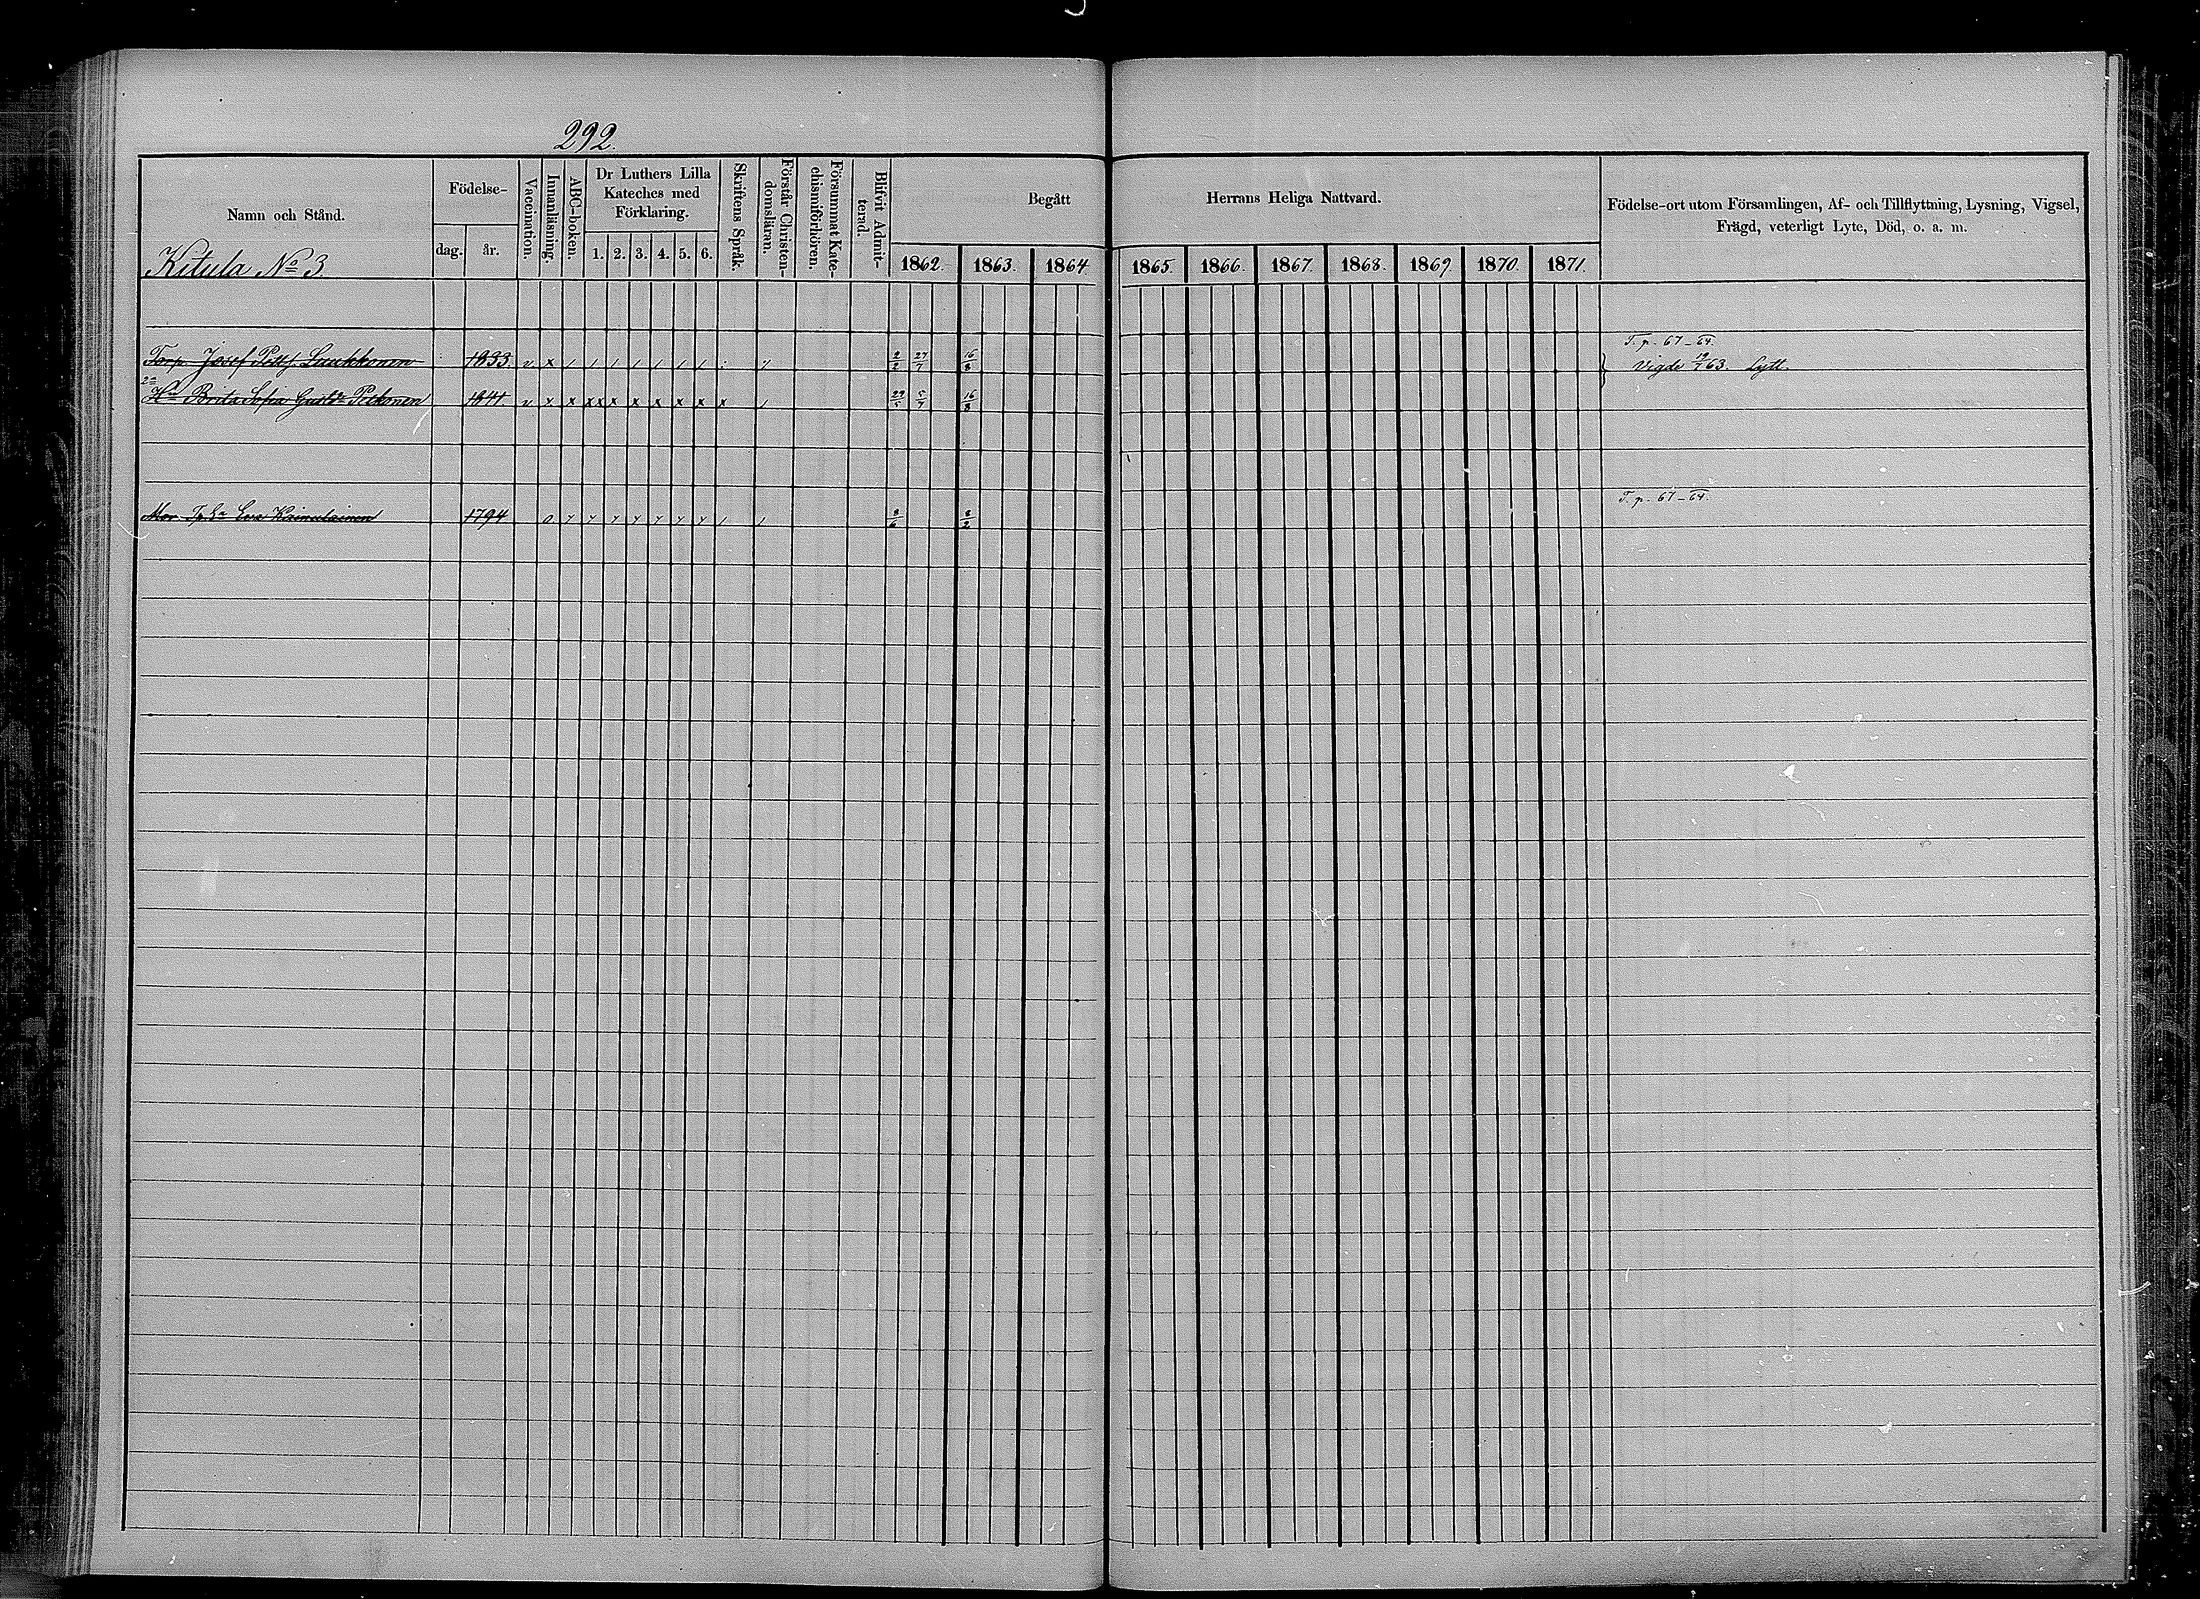 292.
Namn och Stånd.
Födelse-
dag. år.
Vaccination.
Innanläsning.
ABC-boken.
Dr Luthers Lilla
Kateches med
Förklaring.
1. 2. 3. 4. 5. 6.
Skriftens Språk.
Förstår Christen-
domsläran.
Försummat Kate-
chismiförhören.
Blifvit Admit-
terad.
Begått Herrans Heliga Nattvard.
1862. 1863. 1864 1865. 1866. 1867. 1868. 1869 1870. 1871.
Födelse-ort utom Församlingen, Af- och Tillflyttning, Lysning, Vigsel,
Frägd, veterligt Lyte, Död, o. a. m.
Kitula No 3
T. p. 67-64.
Torp. Josef Laukkonen 1833. v. x / / / / / / / 2/2 27/7 16/8 Vigde 63. Lytt.
2a
Hu Brita Sofia Pekonen 1841 v x x x x x x x x x x / 29/5 5/7 16/8
T. p. 67-64.
Mor Eva Kainulainen 1794 8/6 8/2